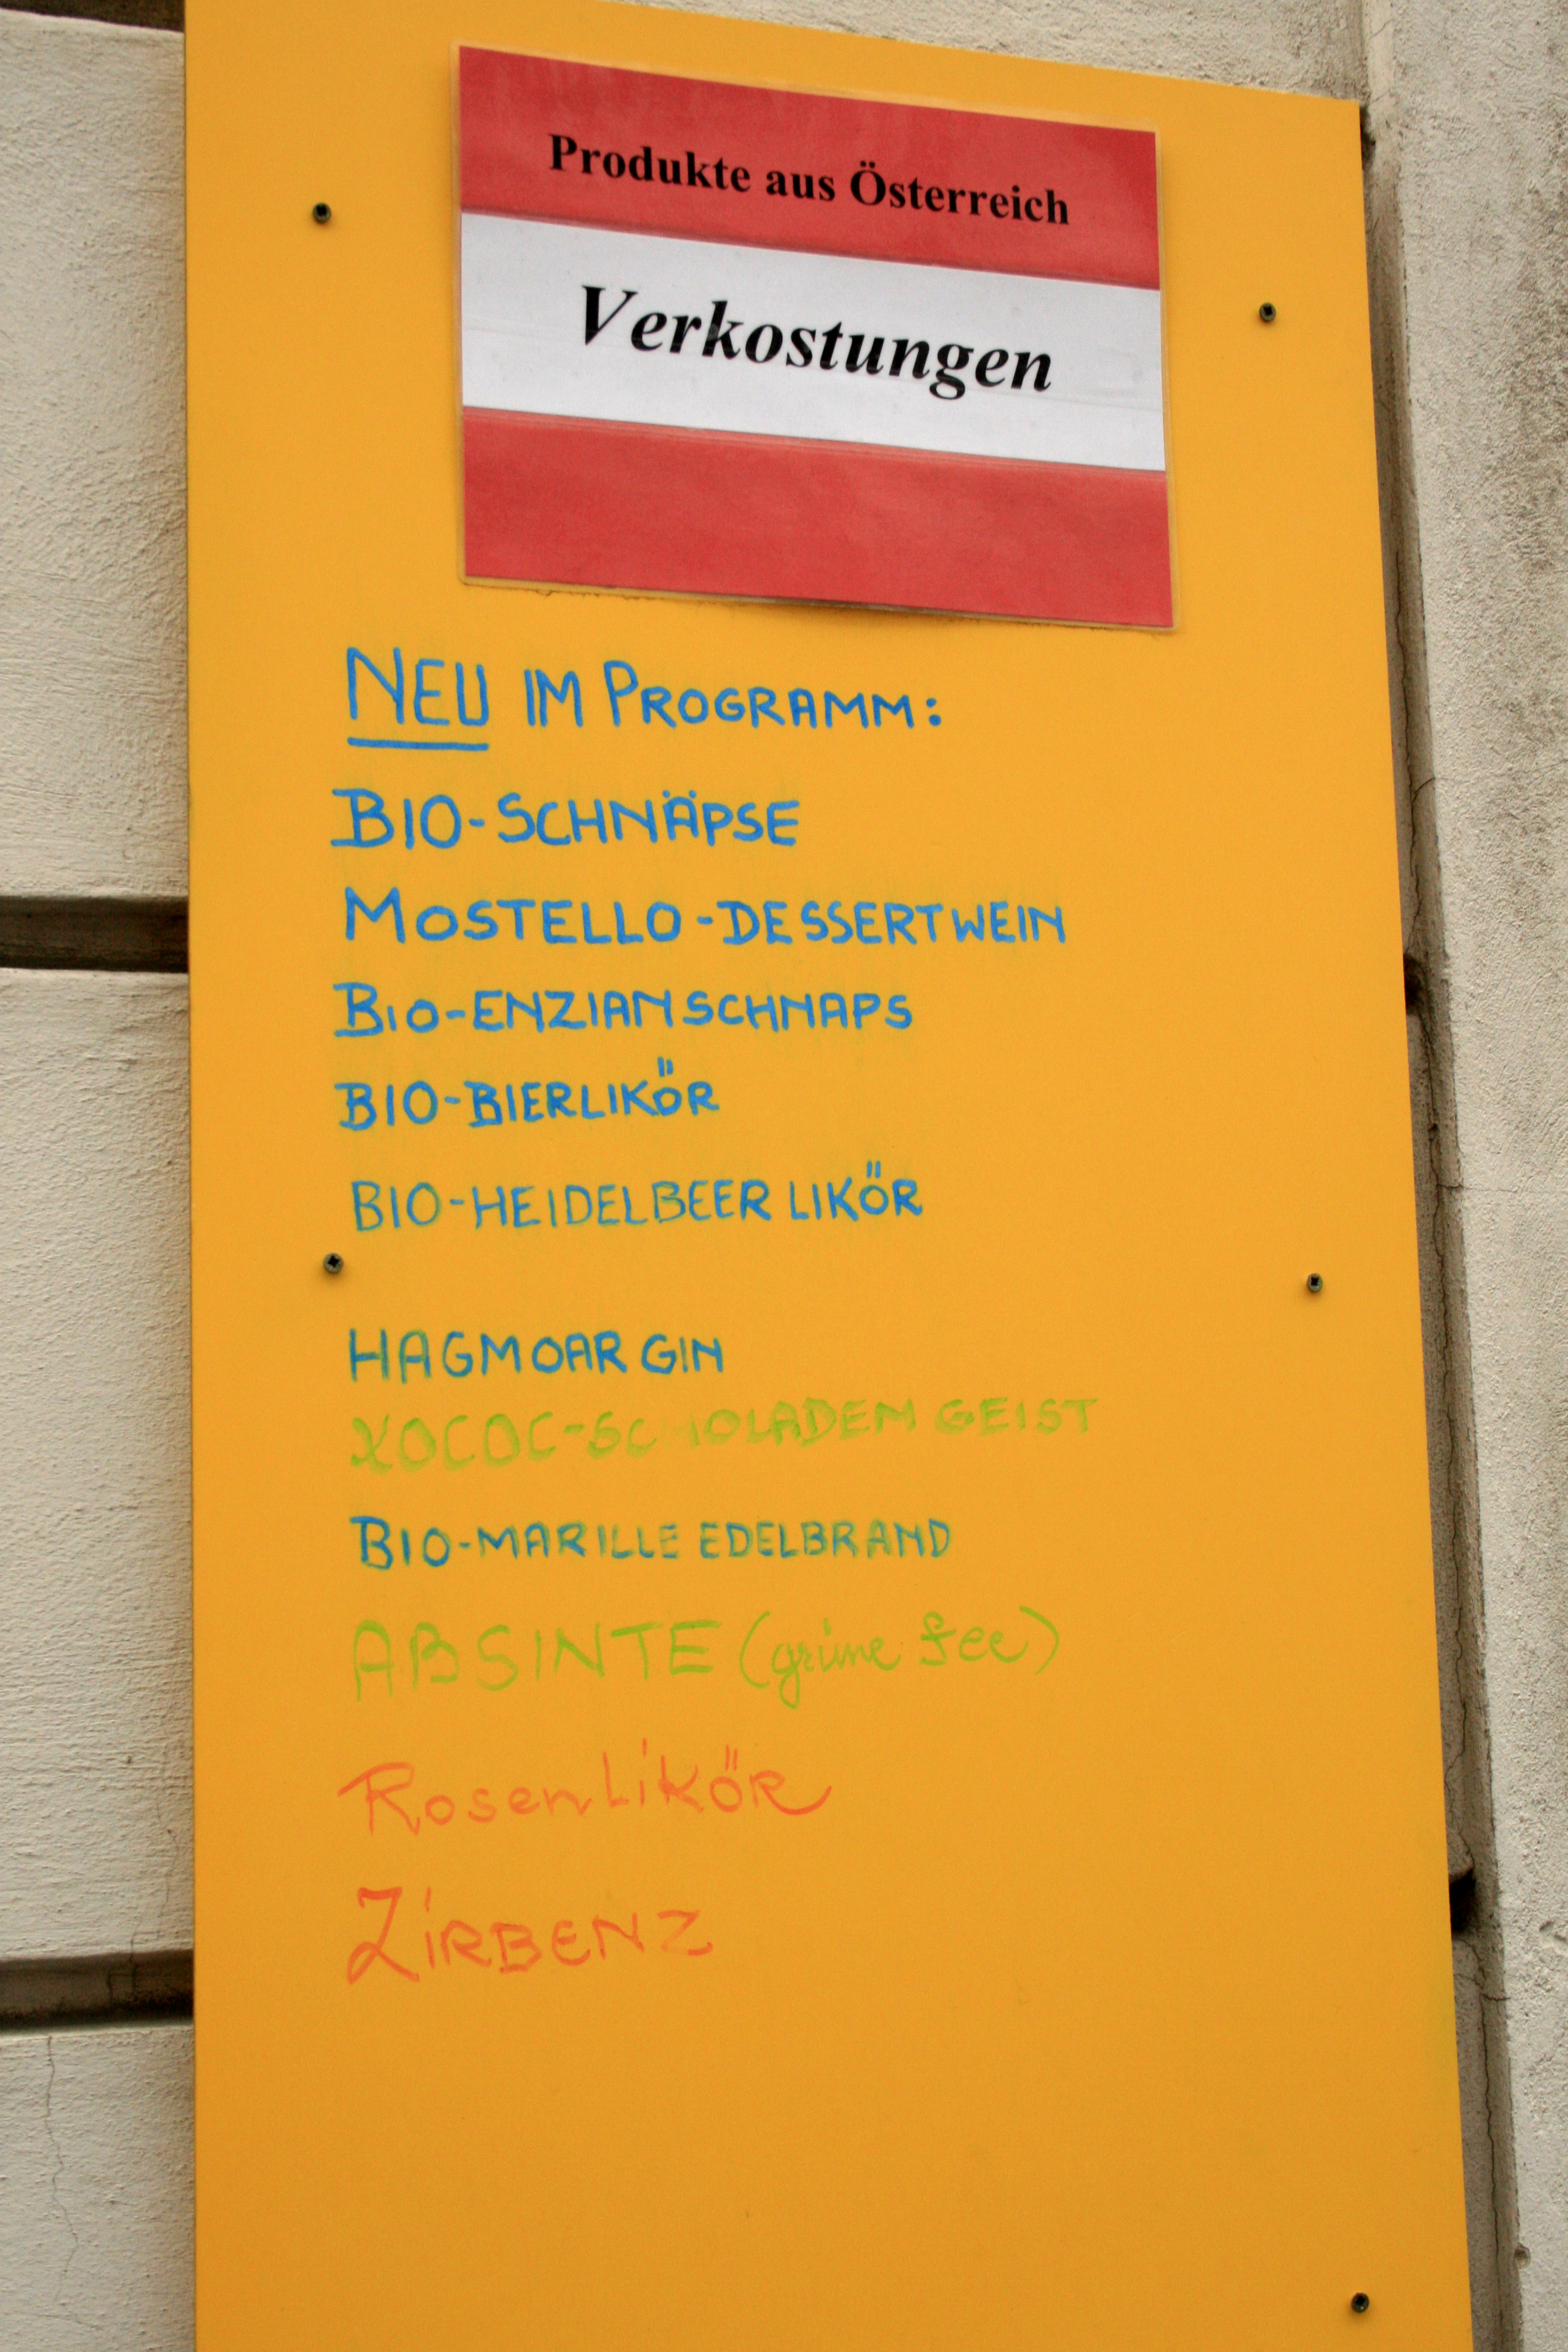 Produkte aus Österreich
Verkostungen
NEU IM PROGRAMM:
BIO-SCHNÄPSE
MOSTELLO-DESSERTWEIN
BIO-ENZIANSCHNAPS
BIO-BIERLIKÖR
BIO-HEIDELBEERLIKÖR
HAGMOAR GIN
XOCOC-SCHOLADEN GEIST
BIO-MARILLE EDELBRAND
ABSINTE (grüne fee)
RosenLiKÖR
ZiRBENZ